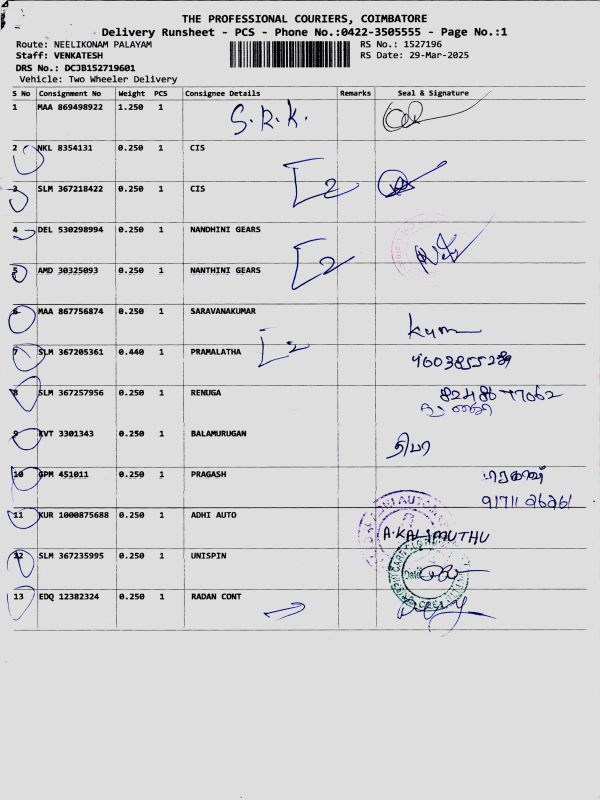 THE PROFESSIONAL COURIERS, COIMBATORE
Delivery Runsheet - PCS - Phone No.:0422-3505555 - Page No.:1
Route: NEELIKONAM PALAYAM
RS No.: 1527196
Staff: VENKATESH
RS Date: 29-Mar-2025
DRS No.: DCJB152719601
Vehicle: Two Wheeler Delivery
S No Consignment No Weight PCS Consignee Details Remarks Seal & Signature
1 MAA 869498922 1.250 1 S.R.K.
2 NKL 8354131 0.250 1 CIS
3 SLM 367218422 0.250 1 CIS 2
4 DEL 530298994 0.250 1 NANDHINI GEARS
5 AMD 30325093 0.250 1 NANTHINI GEARS 2
6 MAA 867756874 0.250 1 SARAVANAKUMAR
7 SLM 367205361 0.440 1 PRAMALATHA 2
8 SLM 367257956 0.250 1 RENUGA
9 KVT 3301343 0.250 1 BALAMURUGAN
10 GPM 451011 0.250 1 PRAGASH
11 KUR 1000875688 0.250 1 ADHI AUTO A.KALIMUTHU
12 SLM 367235995 0.250 1 UNISPIN
13 EDQ 12382324 0.250 1 RADAN CONT